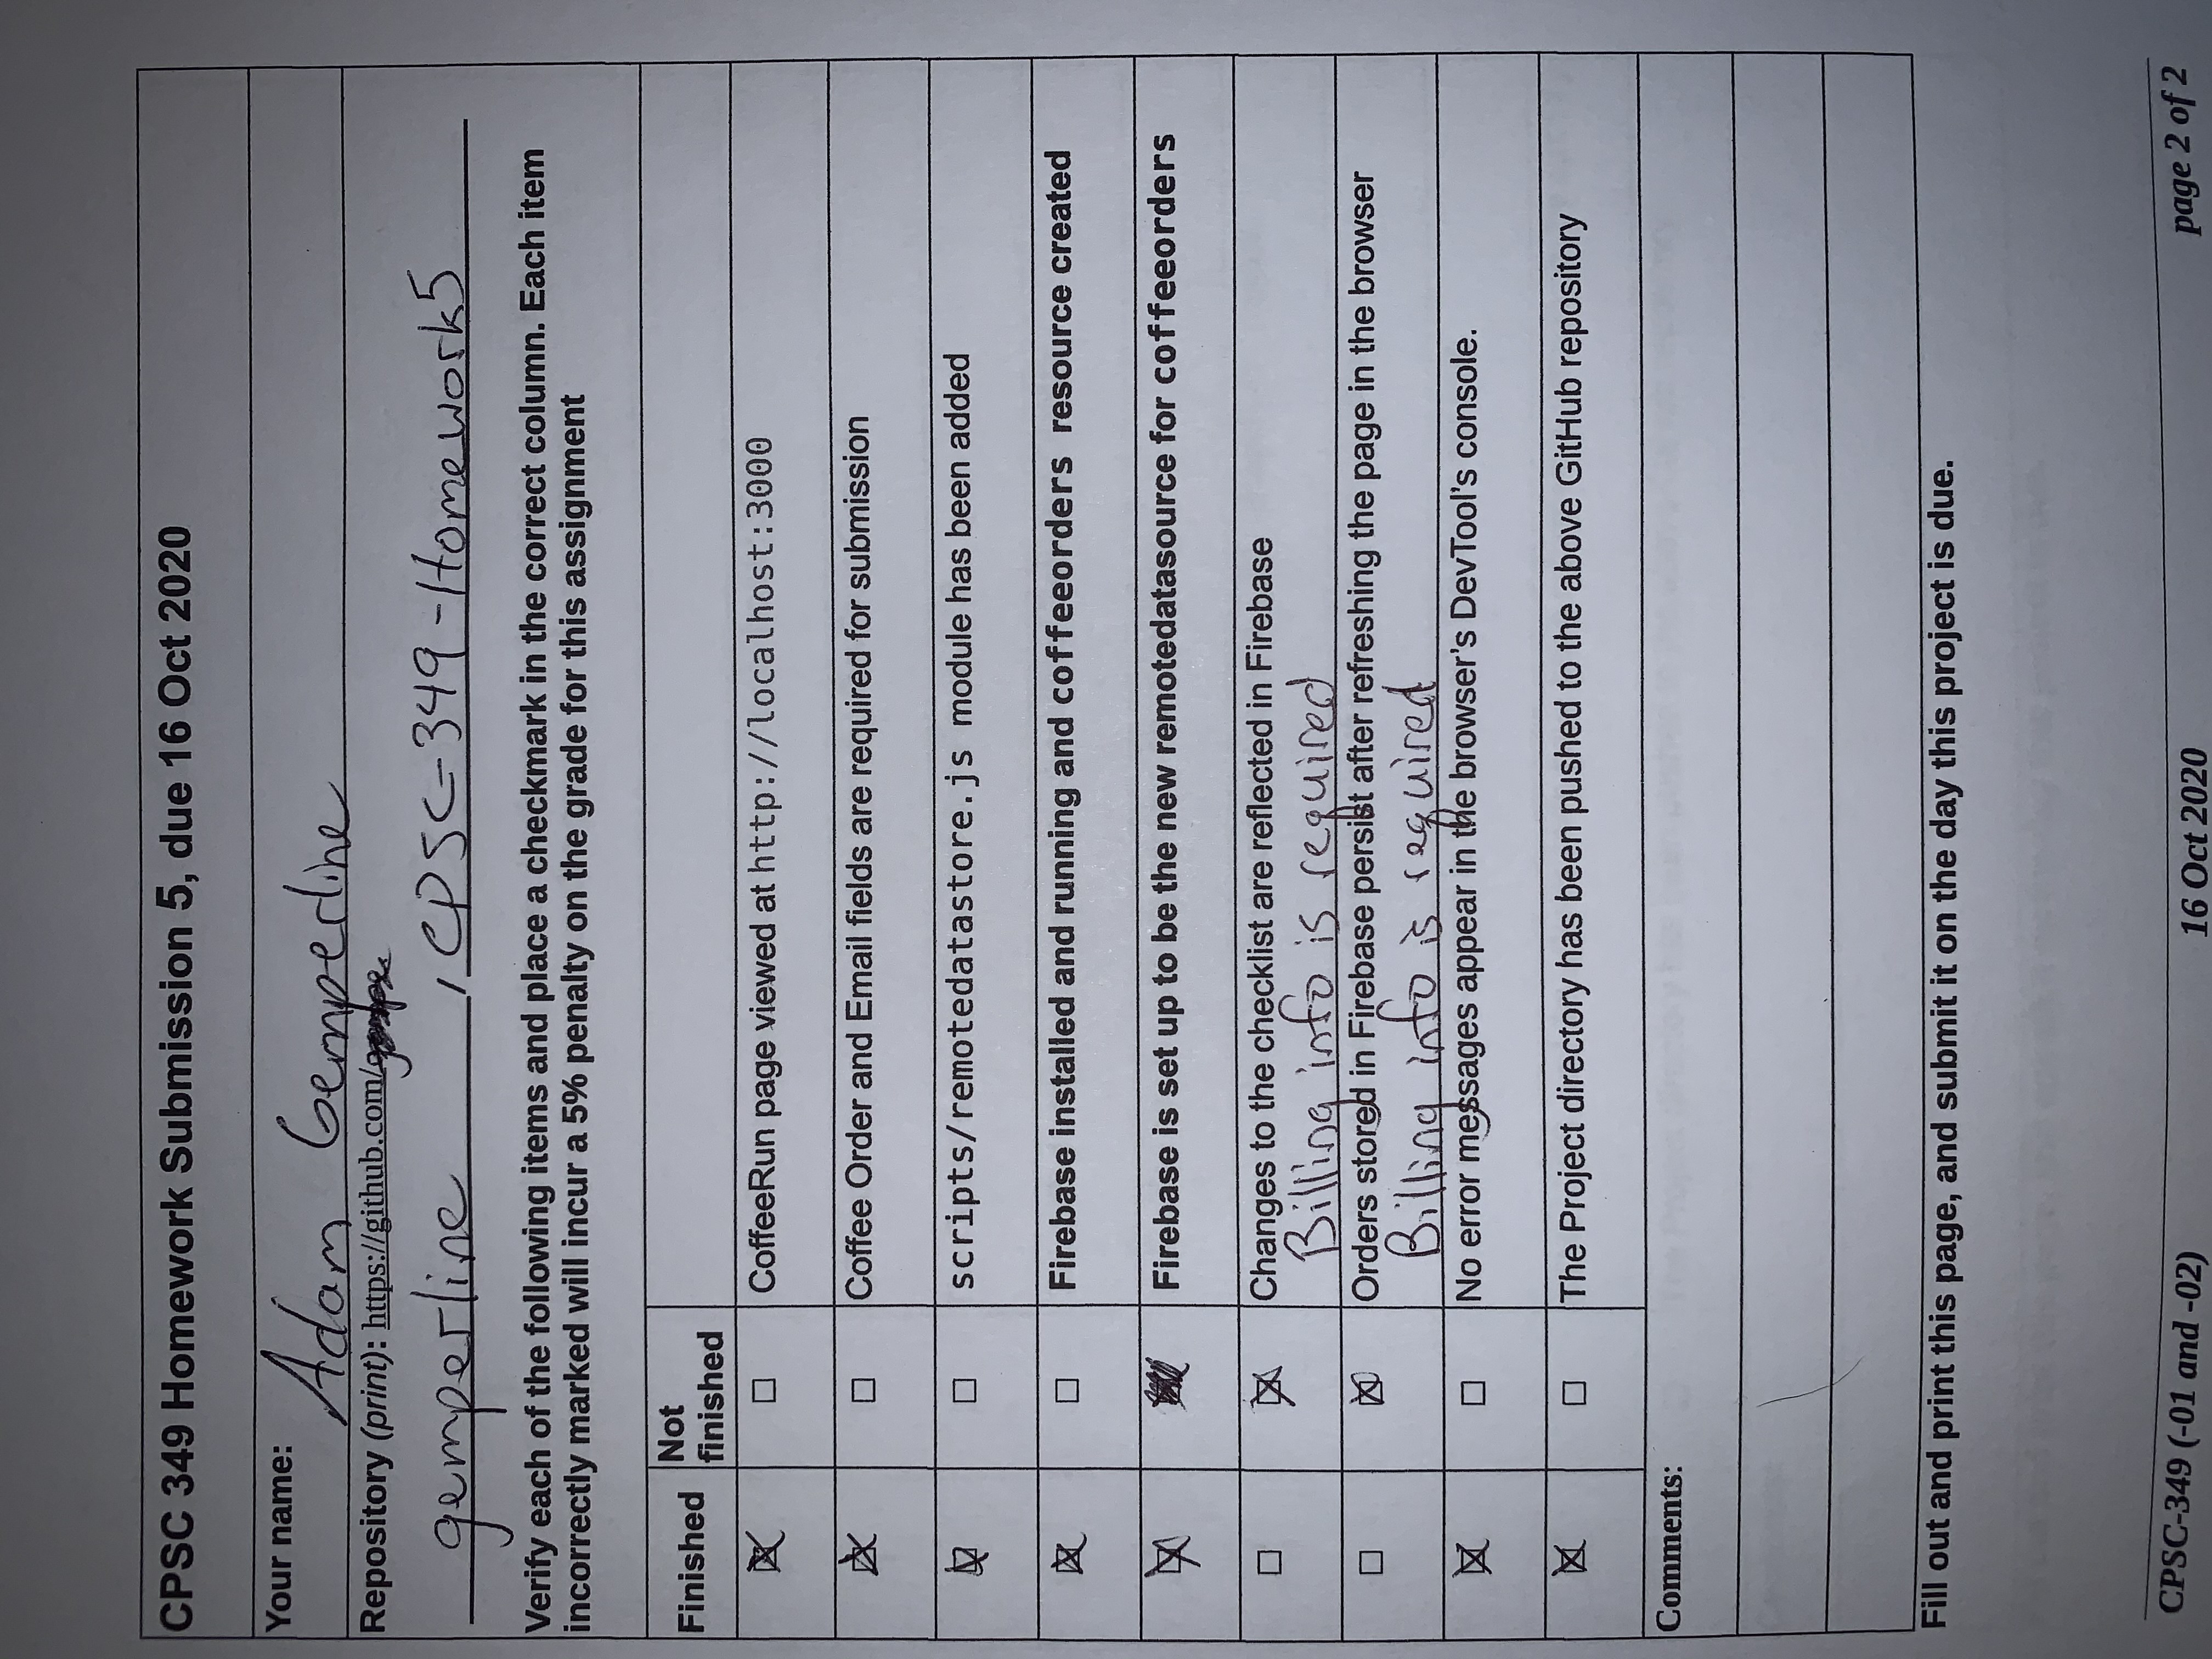 CPSC 349 Homework Submission 5, due 16 Oct 2020
Your name: Adam Gemperline
Repository (print): https://github.com/
gemperline / CPSC-349-Homework5
Verify each of the following items and place a checkmark in the correct column. Each item
incorrectly marked will incur a 5% penalty on the grade for this assignment
Finished
Not
finished
CoffeeRun page viewed at http://localhost:3000
Coffee Order and Email fields are required for submission
scripts/remotedatastore.js module has been added
Firebase installed and running and coffeeorders resource created
Firebase is set up to be the new remotedatasource for coffeeorders
Changes to the checklist are reflected in Firebase
Billing info is required
Orders stored in Firebase persist after refreshing the page in the browser
Billing info is required
No error messages appear in the browser's DevTool's console.
The Project directory has been pushed to the above GitHub repository
Comments:
Fill out and print this page, and submit it on the day this project is due.
CPSC-349 (-01 and -02) 16 Oct 2020 page 2 of 2